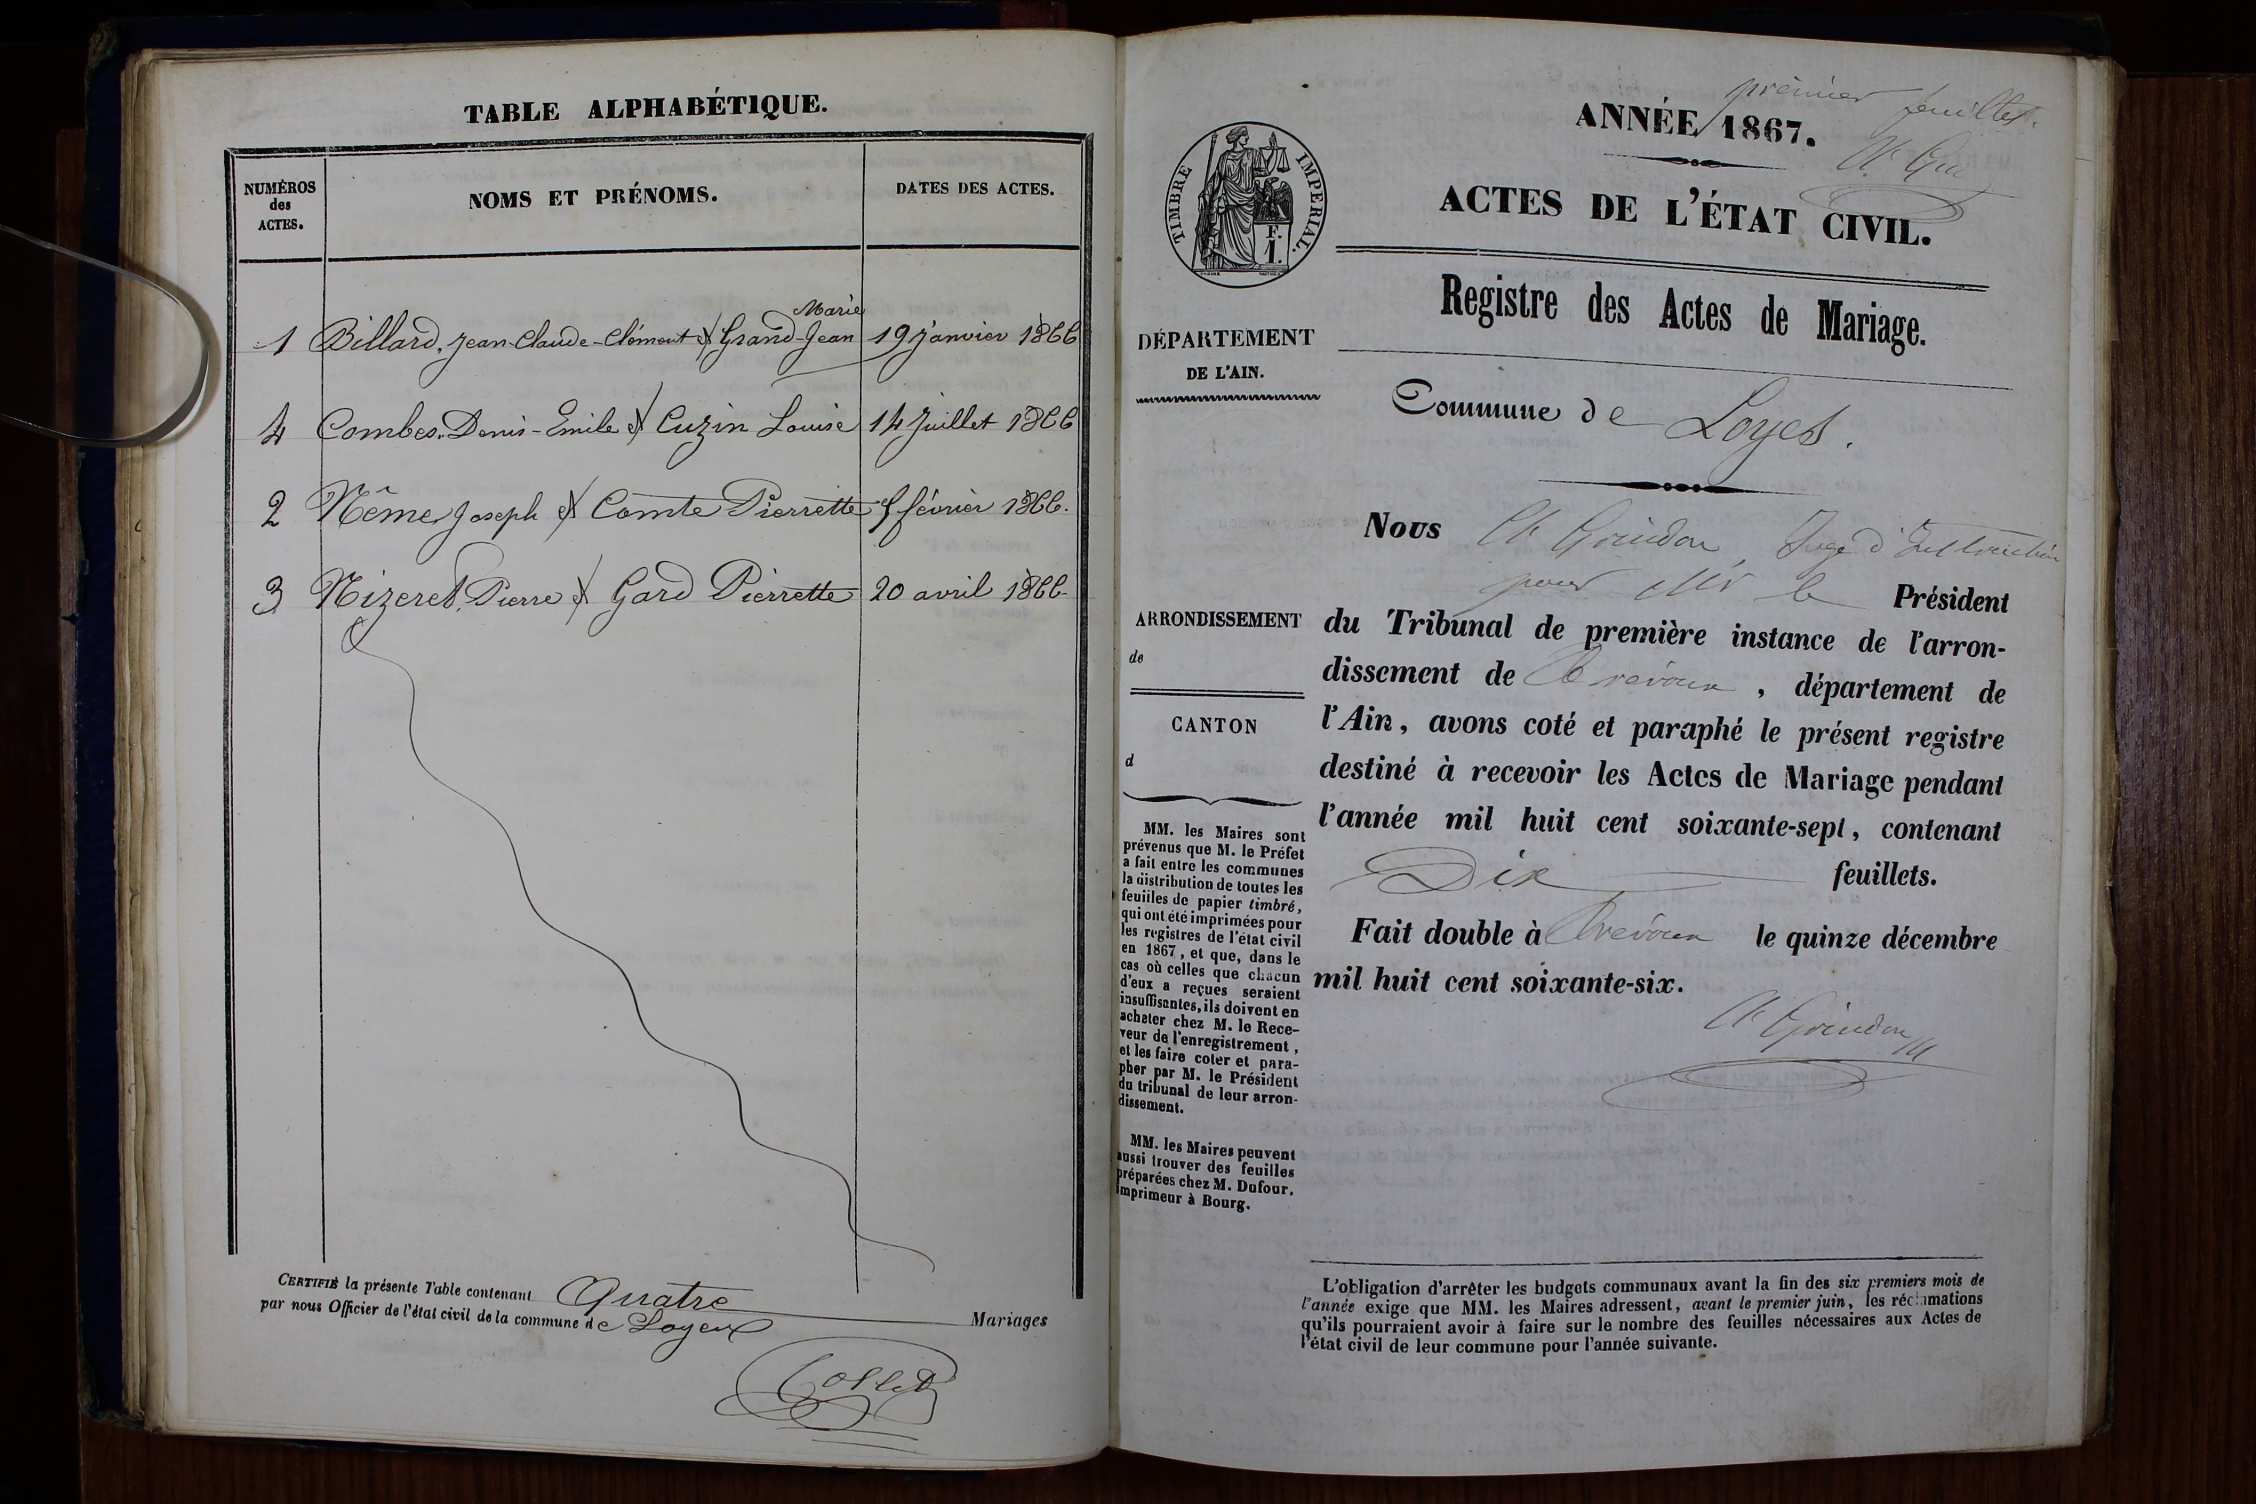 TABLE ALPHABÉTIQUE.
NUMÉROS
des
ACTES.
NOMS ET PRÉNOMS.
DATES DES ACTES.
Marie
1 Billard, Jean-Claude-Clément et Grand-Jean 19 janvier 1866
4 Combes, Denis-Emile et Cuzin Louise 14 juillet 1866
2 Nême Joseph et Comte Pierrette février 1866.
3 Nizeret, Pierre et Gard Pierrette 20 avril 1866
CERTIFIÉ la présente Table contenant Quatre Mariages
par nous Officier de l'état civil de la commune de Loyes
Collet
premier feuillet.
ANNÉE 1867.
ACTES DE L'ÉTAT CIVIL.
Registre des Actes de Mariage.
TIMBRE IMPERIAL.
F.
1.
DÉPARTEMENT
DE L'AIN.
Commune de Loyes.
ARRONDISSEMENT
de
CANTON
d
MM. les Maires sont
prévenus que M. le Préfet
a fait entre les communes
la distribution de toutes les
feuilles de papier timbré,
qui ont été imprimées pour
les registres de l'état civil
en 1867, et que, dans le
cas où celles que chacun
d'eux a reçues seraient
insuffisantes, ils doivent en
acheter chez M. le Rece-
veur de l'enregistrement,
et les faire coter et para-
pher par M. le Président
du tribunal de leur arron-
dissement.
MM. les Maires peuvent
aussi trouver des feuilles
préparées chez M. Dufour,
imprimeur à Bourg.
Nous Ch Grindon, Juge d'Instruction
pour Mr le Président
du Tribunal de première instance de l'arron-
dissement de Trévoux, département de
l'Ain, avons coté et paraphé le présent registre
destiné à recevoir les Actes de Mariage pendant
l'année mil huit cent soixante-sept, contenant
Dix feuillets.
Fait double à Trévoux le quinze décembre
mil huit cent soixante-six.
Ch Grindon
L'obligation d'arrêter les budgets communaux avant la fin des six premiers mois de
l'année exige que MM. les Maires adressent, avant le premier juin, les réclamations
qu'ils pourraient avoir à faire sur le nombre des feuilles nécessaires aux Actes de
l'état civil de leur commune pour l'année suivante.